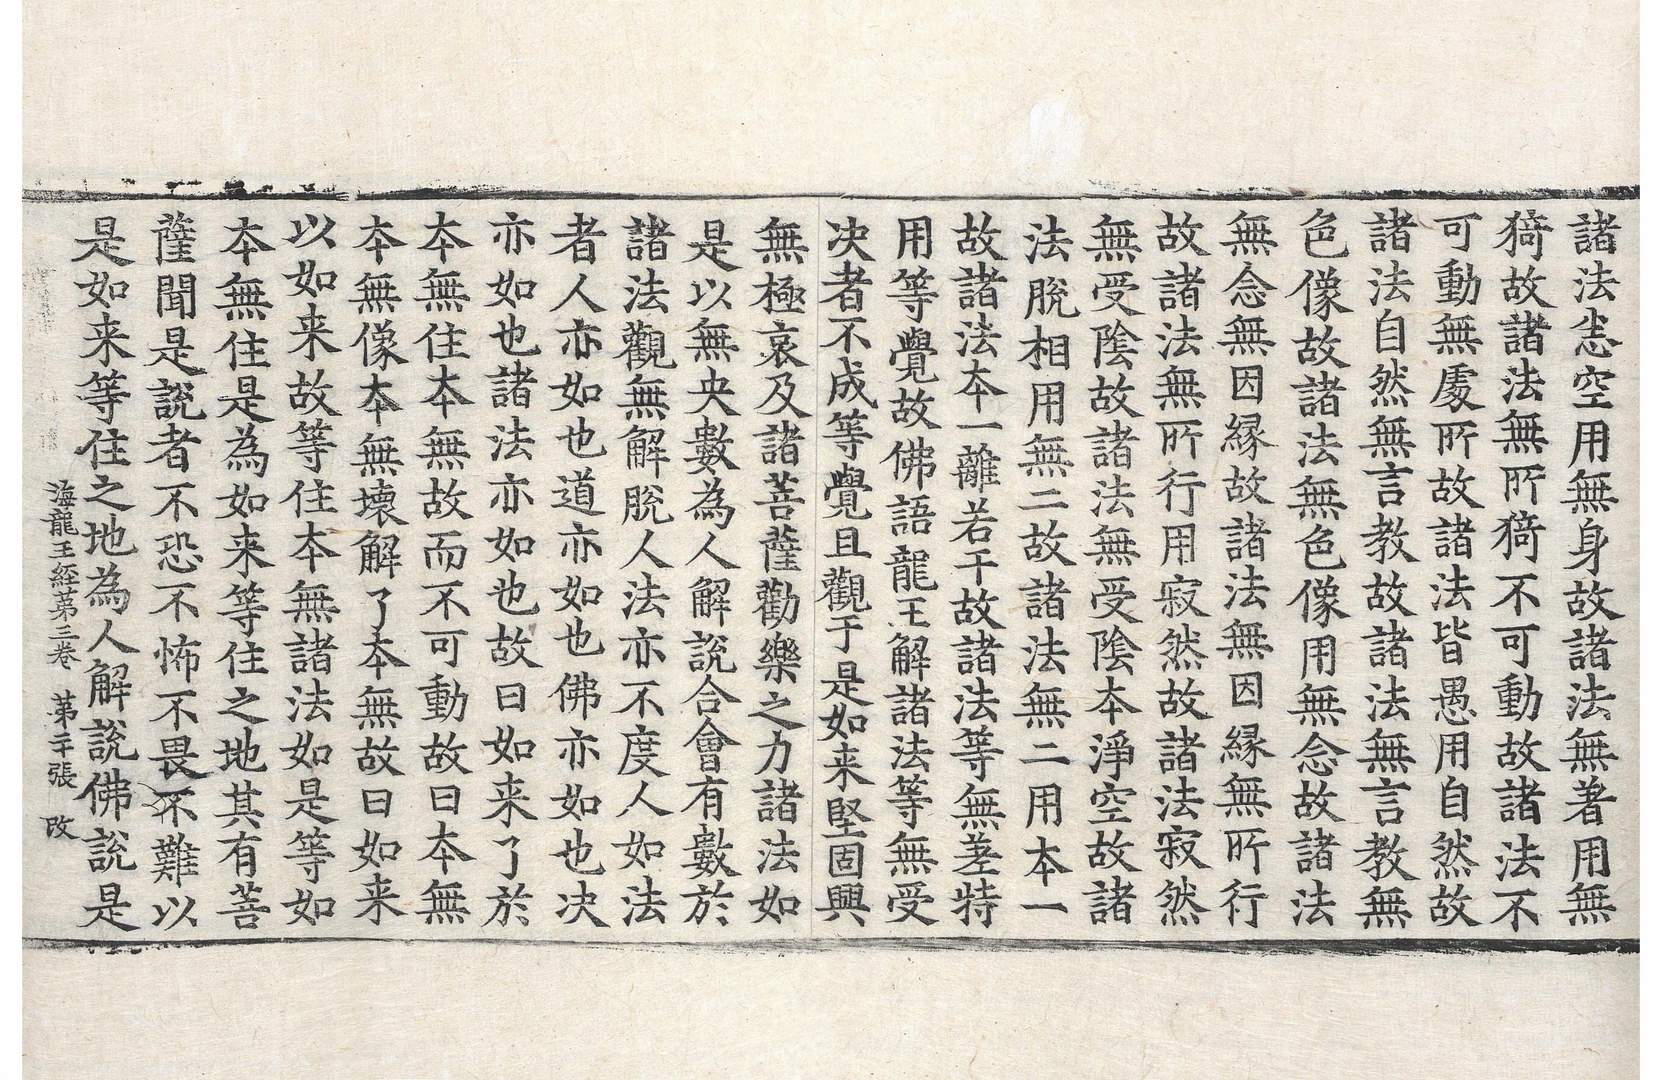 諸法恙空用無身故諸法無著用無
猗故諸法無所猗不可動故諸法不
可動無處所故諸法皆愚用自然故
諸法自然無言教故諸法無言教無
色像故諸法無色像用無念故諸法
無念無因緣故諸法無因緣無所行
故諸法無所行用寂然故諸法寂然
無受陰故諸法無受陰本淨空故諸
法脫相用無二故諸法無二用本一
故諸法本一離若干故諸法等無差特
用等覺故佛語龍王解諸法等無受
决者不成等覺且觀于是如来堅固興
無極哀及諸菩薩勸樂之力諸法如
是以無央數為人解說合會有數於
諸法觀無解脫人法亦不度人如法
者人亦如也道亦如也佛亦如也决
亦如也諸法亦如也故曰如来了於
本無住本無故而不可動故曰本無
本無像本無壞解了本無故曰如来
以如来故等住本無諸法如是等如
本無住是為如来等住之地其有菩
薩聞是說者不恐不怖不畏不難以
是如来等住之地為人解說佛說是
海龍王經苐三卷 苐二張 改